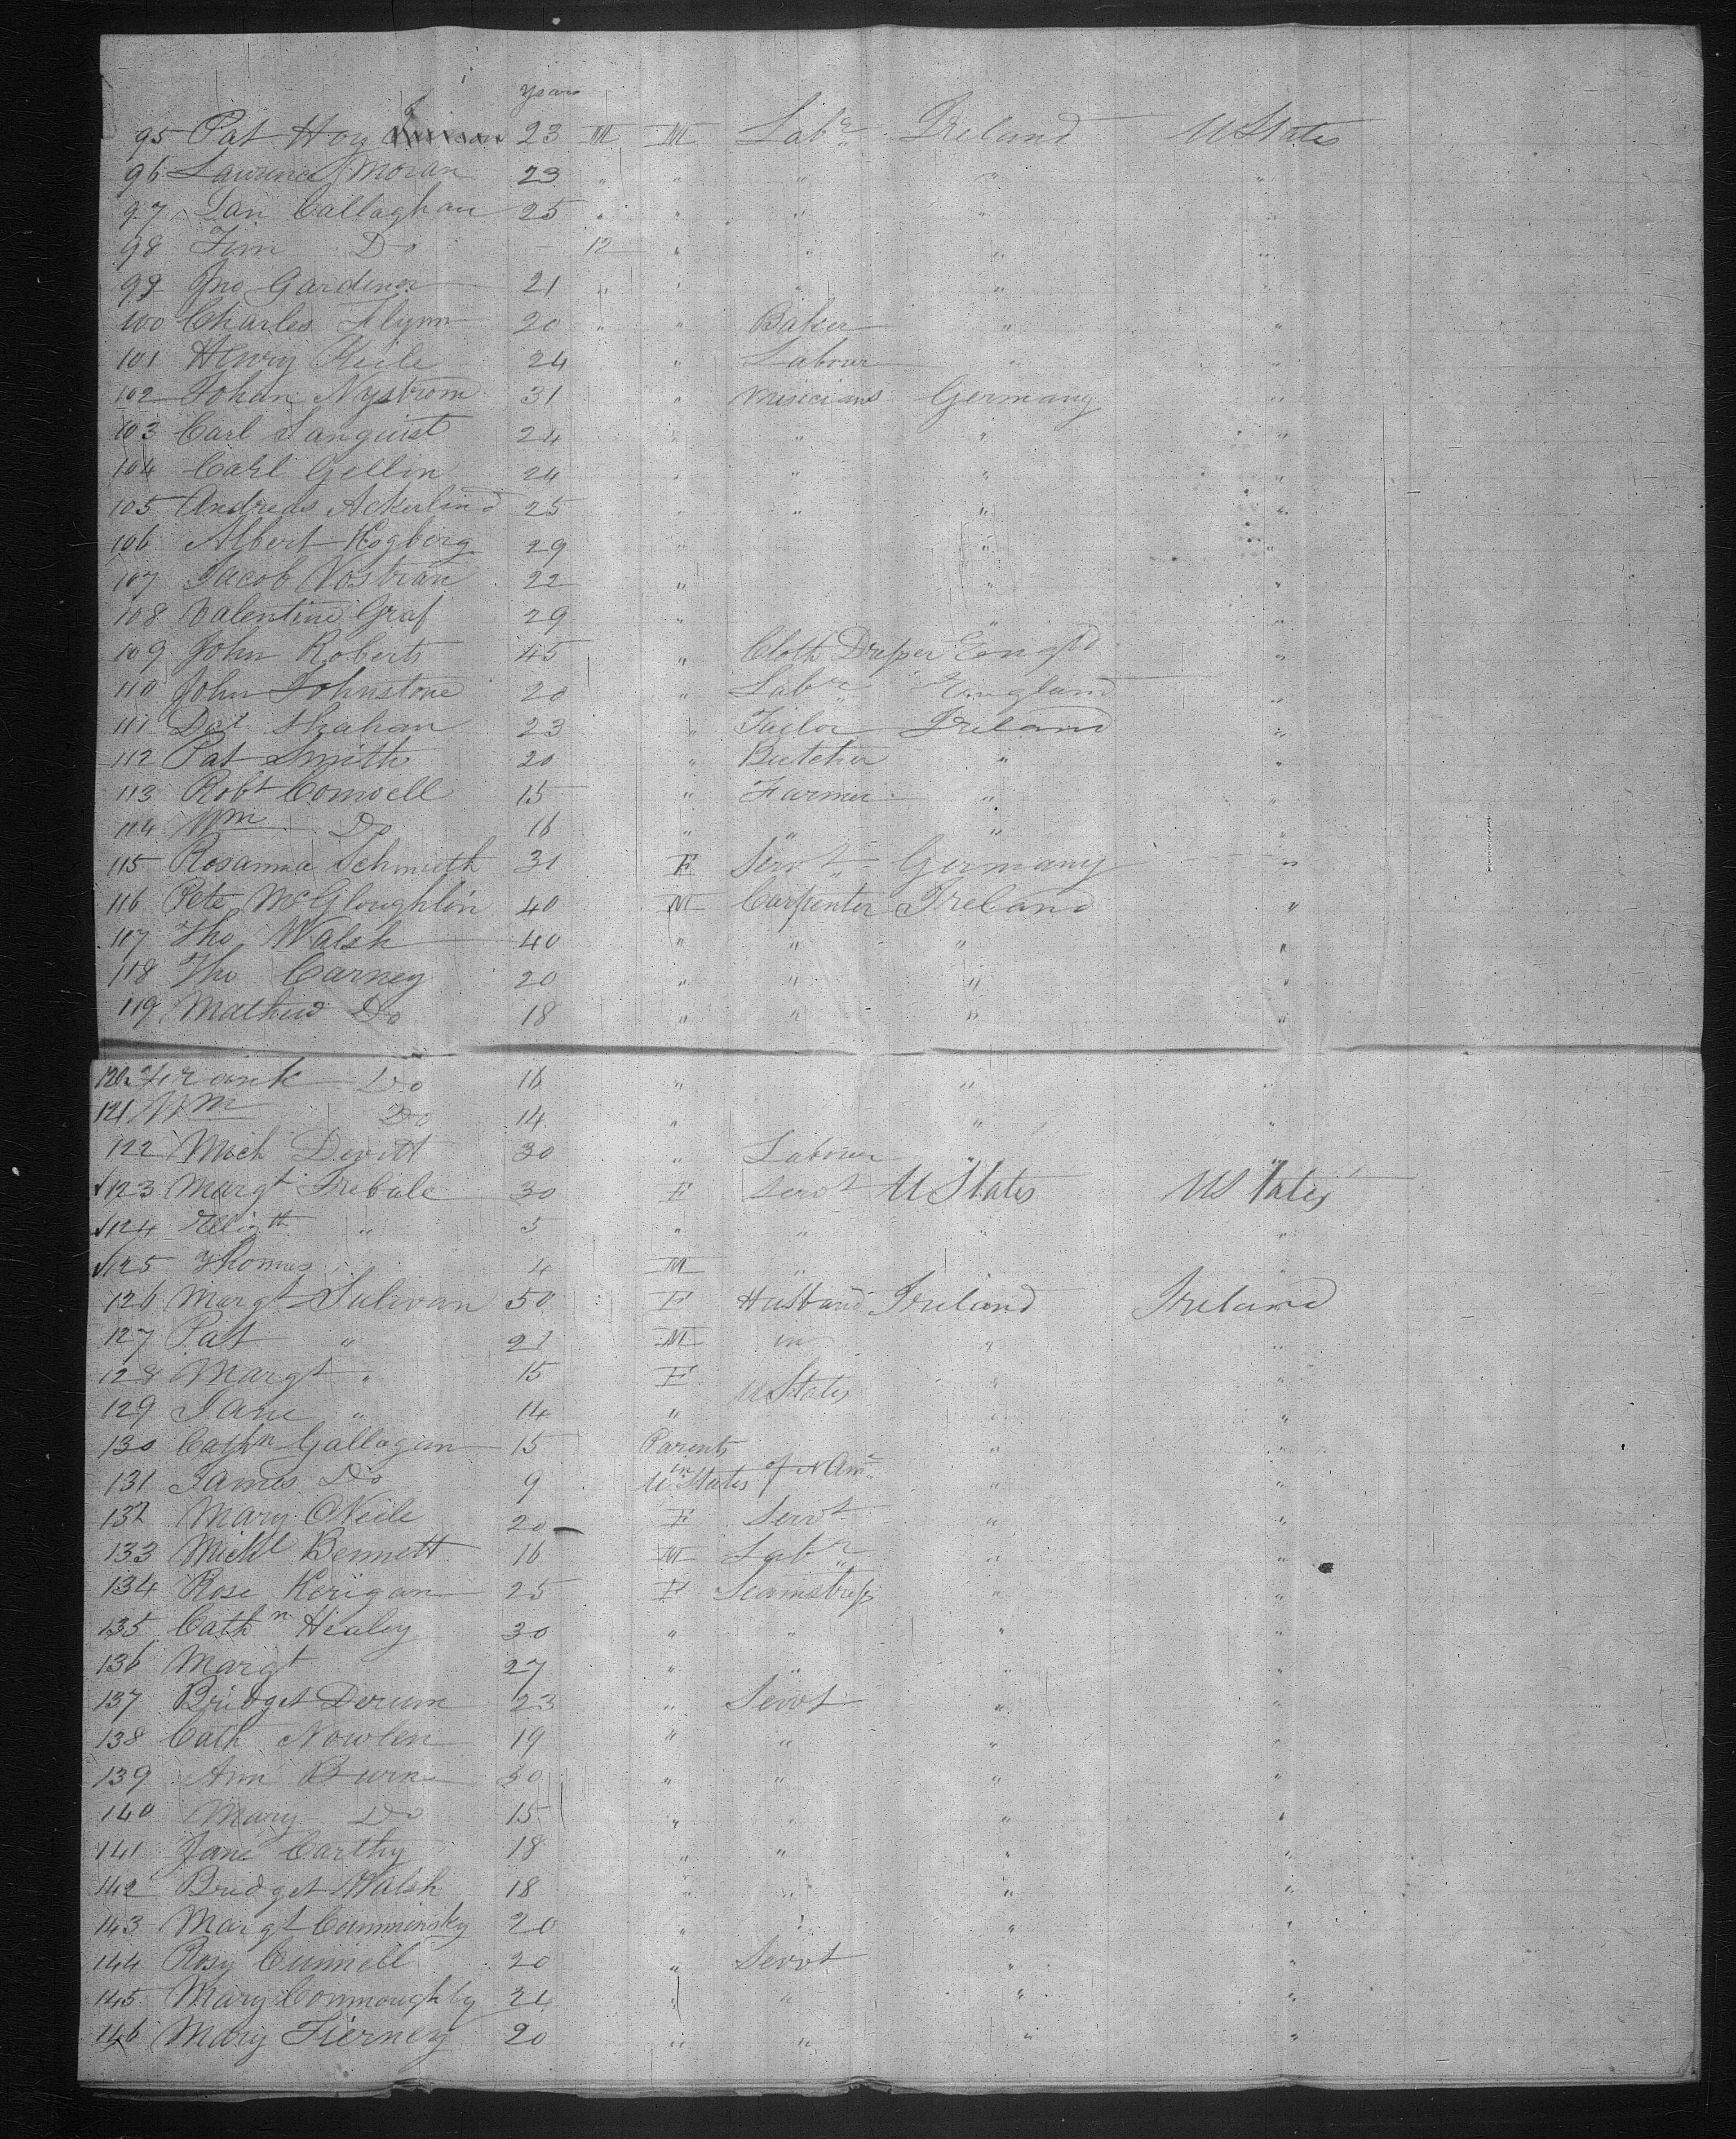 years
95 Pat Hoy 23 M M Labr Ireland U States
96 Lawrence Moran 23 " " " " "
97 Dan Callaghan 25 " " " " "
98 Tim Do - 12 " " " "
99 Jno Gardener 21 " " " " "
100 Charles Flynn 20 " " Baker " "
101 Henry Keile 24 " Labour " "
102 Johan Nystrom 31 " Musicians Germany "
103 Carl Lanquist 24 " " " "
104 Carl Gellin 24 " " " "
105 Andreas Ackerlind 25 " " " "
106 Albert Hogberg 29 " " "
107 Jacob Nostran 22 " " "
108 Valentine Graf 29 " " "
109 John Roberts 45 " Cloth Dresser Engld "
110 John Johnstone 20 " Labr England "
111 Dat Shahan 23 " Tailor Ireland "
112 Pat Smith 20 " Butcher " "
113 Robt Comwell 15 " Farmer " "
114 Wm Do 16 " " " "
115 Rosanna Schmieth 31 F Servt Germany "
116 Pete McGloughlin 40 M Carpenter Ireland "
117 Tho Walsh 40 " " " "
118 Tho Carney 20 " " " "
119 Mathew Do 18 " " " "
120 Frank Do 16 " " "
121 Wm Do 14 " " "
122 Mich Devitt 30 " Labour " "
123 Margt Trebale 30 F Servt U States U States
124 Elizth " 5 " " " "
125 Thomas " 4 M " "
126 Margt Sulivan 50 F Husband Ireland Ireland
127 Pat " 21 M in " "
128 Margt " 15 F U States " "
129 Jane " 14 " " "
130 Cathn Gallagan 15 Parents " "
131 James Do 9 in U States of N Am " "
132 Mary ONeile 20 F Servt " "
133 Michl Bennett 16 M Labr " "
134 Rose Kerigan 25 F Seamstress " "
135 Cathn Healey 30 " " " "
136 Margt 27 " " " "
137 Bridget Derum 23 " Servt " "
138 Cath Nowlen 19 " " " "
139 Ann Burn 30 " " " "
140 Mary Do 15 " " " "
141 Jane Carthy 18 " " " "
142 Bridget Walsh 18 " " " "
143 Margt Cumminsky 20 " " " "
144 Rosy Cunnell 20 " Servt " "
145 Mary Connoughty 21 " " " "
146 Mary Tierney 20 " " " "